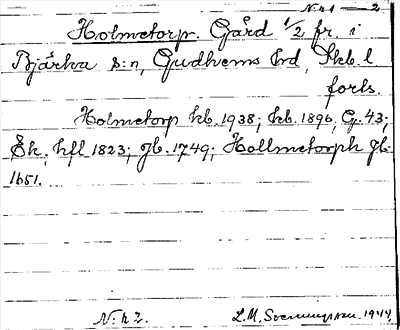 N:r 1 — 2
Holmetorp. Gård 1/2 fr. i
Bjärka s:n, Gudhems hd, Skb. l
forts.
Holmetorp kb. 1938; kb. 1896, G. 43;
Ek; hfl 1823; jb. 1749; Hollmetorph jb.
1651.
N:r 2. L.M. Svenungsson. 1944